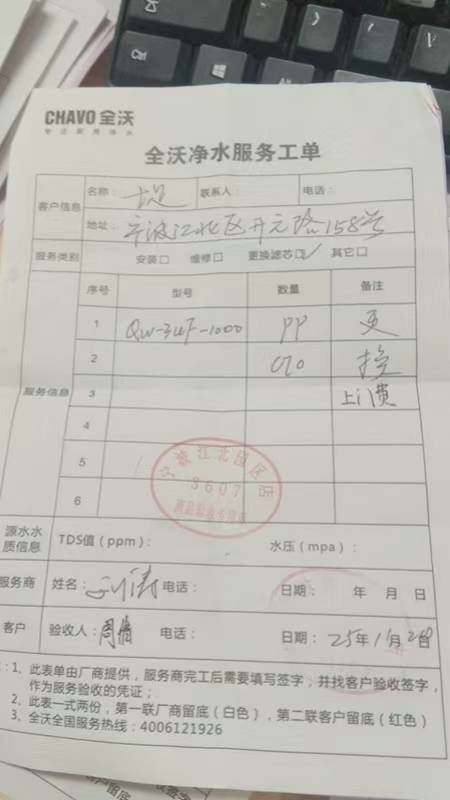 CHAVO 全沃
全沃净水服务工单
客户信息 名称： 联系人： 电话：
地址：宁波江北区开元路158号
服务类别 安装□ 维修□ 更换滤芯☑ 其它□
服务信息 序号 型号 数量 备注
1 QW-3UF-1000 PP 更
2 换
3 上门费
4
5
6
3607
源水水质信息 TDS值（ppm）： 水压（mpa）：
服务商 姓名： 电话： 日期： 年 月 日
客户 验收人：周倩 电话： 日期：25年1月20日
1、此表单由厂商提供，服务商完工后需要填写签字，并找客户验收签字，
作为服务验收的凭证；
2、此表一式两份，第一联厂商留底（白色），第二联客户留底（红色）
3、全沃全国服务热线：4006121926